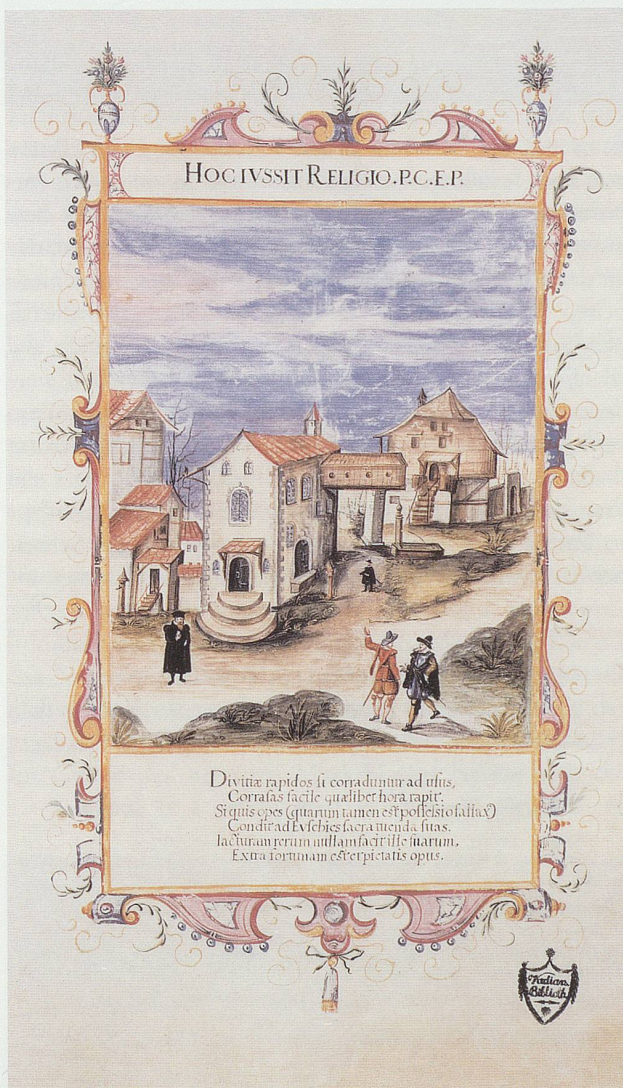 HOC IVSSIT RELIGIO.P.C.E.P.
Divitiæ rapidos si corraduntur ad usus,
Corrasas facile quælibet hora rapit.
Si quis opes (quarum tamen est possessio fallax)
Condit ad Eusebies sacra tuenda suas.
Iacturam rerum nullam facit ille suarum,
Extra fortunam est et pietatis opus.
Vadian.
Biblioth.